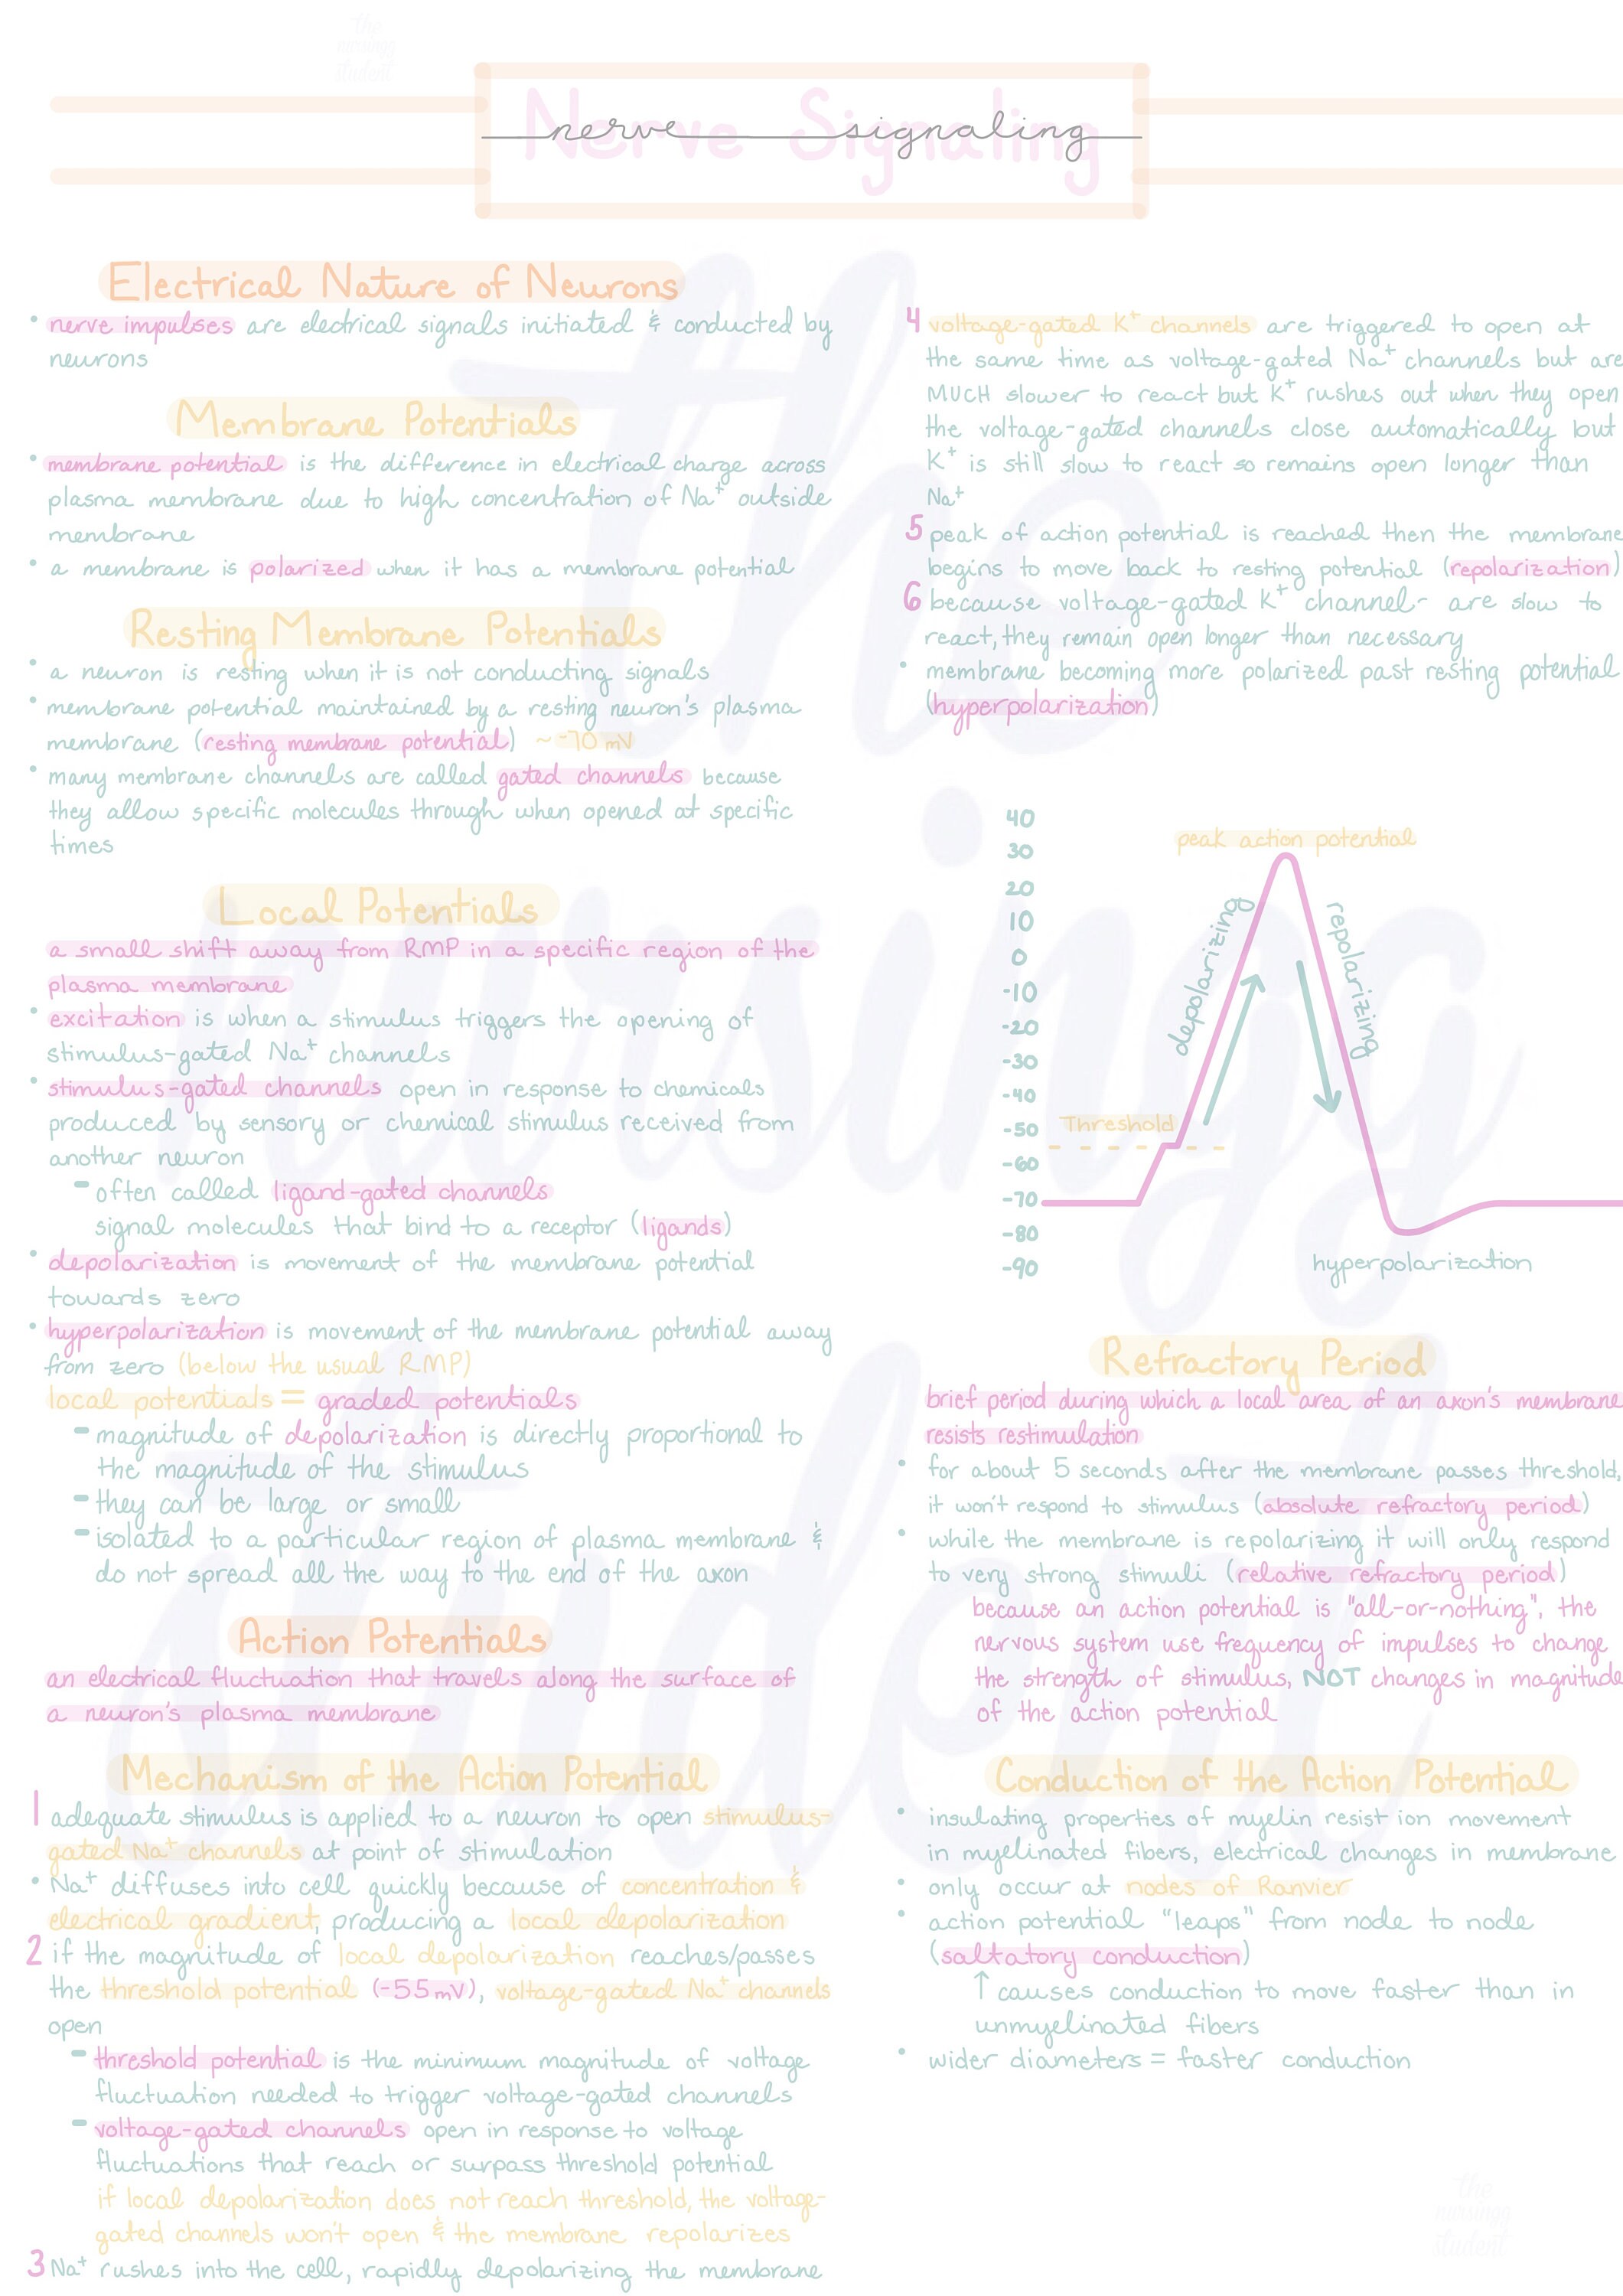 the
nursingg
student
Nerve Signaling
nerve signaling
Electrical Nature of Neurons
• nerve impulses are electrical signals initiated & conducted by
neurons
Membrane Potentials
• membrane potential is the difference in electrical charge across
plasma membrane due to high concentration of Na⁺ outside
membrane
• a membrane is polarized when it has a membrane potential
Resting Membrane Potentials
• a neuron is resting when it is not conducting signals
• membrane potential maintained by a resting neuron's plasma
membrane (resting membrane potential) ~ -70 mV
• many membrane channels are called gated channels because
they allow specific molecules through when opened at specific
times
Local Potentials
a small shift away from RMP in a specific region of the
plasma membrane
• excitation is when a stimulus triggers the opening of
stimulus-gated Na⁺ channels
• stimulus-gated channels open in response to chemicals
produced by sensory or chemical stimulus received from
another neuron
- often called ligand-gated channels
signal molecules that bind to a receptor (ligands)
• depolarization is movement of the membrane potential
towards zero
• hyperpolarization is movement of the membrane potential away
from zero (below the usual RMP)
local potentials = graded potentials
- magnitude of depolarization is directly proportional to
the magnitude of the stimulus
- they can be large or small
- isolated to a particular region of plasma membrane &
do not spread all the way to the end of the axon
Action Potentials
an electrical fluctuation that travels along the surface of
a neuron's plasma membrane
Mechanism of the Action Potential
1 adequate stimulus is applied to a neuron to open stimulus-
gated Na⁺ channels at point of stimulation
• Na⁺ diffuses into cell quickly because of concentration &
electrical gradient, producing a local depolarization
2 if the magnitude of local depolarization reaches/passes
the threshold potential (-55mV), voltage-gated Na⁺ channels
open
- threshold potential is the minimum magnitude of voltage
fluctuation needed to trigger voltage-gated channels
- voltage-gated channels open in response to voltage
fluctuations that reach or surpass threshold potential
if local depolarization does not reach threshold, the voltage-
gated channels won't open & the membrane repolarizes
3 Na⁺ rushes into the cell, rapidly depolarizing the membrane
4 voltage-gated K⁺ channels are triggered to open at
the same time as voltage-gated Na⁺ channels but are
MUCH slower to react but K⁺ rushes out when they open
the voltage-gated channels close automatically but
K⁺ is still slow to react so remains open longer than
Na⁺
5 peak of action potential is reached then the membrane
begins to move back to resting potential (repolarization)
6 because voltage-gated K⁺ channel- are slow to
react, they remain open longer than necessary
• membrane becoming more polarized past resting potential
(hyperpolarization)
40
peak action potential
30
20
10
0
-10
-20
-30
-40
-50
-60
-70
-80
-90
depolarizing
repolarizing
Threshold
hyperpolarization
Refractory Period
brief period during which a local area of an axon's membrane
resists restimulation
• for about 5 seconds after the membrane passes threshold,
it won't respond to stimulus (absolute refractory period)
• while the membrane is repolarizing it will only respond
to very strong stimuli (relative refractory period)
because an action potential is "all-or-nothing", the
nervous system use frequency of impulses to change
the strength of stimulus, NOT changes in magnitude
of the action potential
Conduction of the Action Potential
• insulating properties of myelin resist ion movement
in myelinated fibers, electrical changes in membrane
• only occur at nodes of Ranvier
• action potential "leaps" from node to node
(saltatory conduction)
↑ causes conduction to move faster than in
unmyelinated fibers
• wider diameters = faster conduction
the
nursingg
student
the
nursingg
student